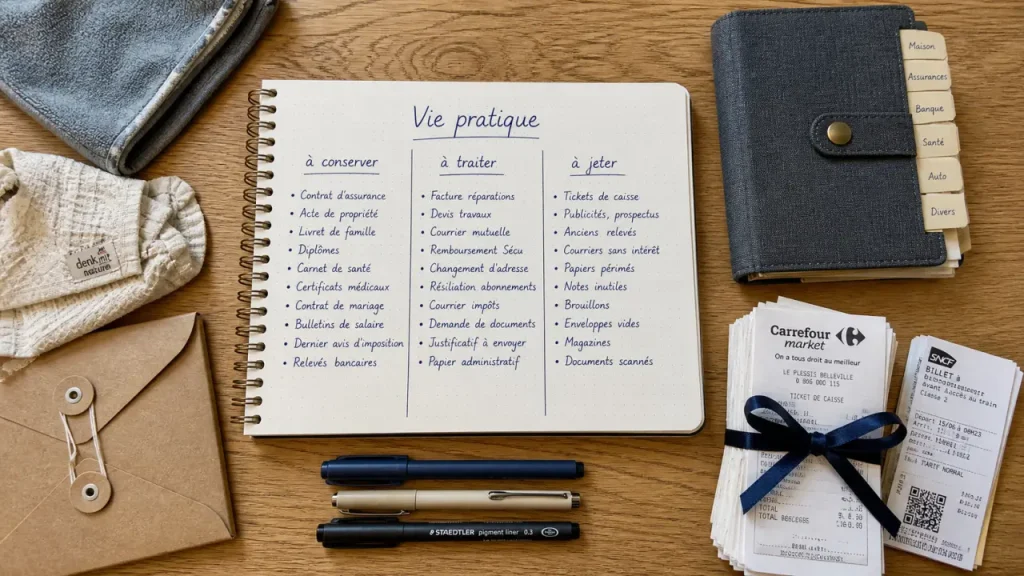 Vie pratique
à conserver
Contrat d'assurance
Acte de propriété
Livret de famille
Diplômes
Carnet de santé
Certificats médicaux
Contrat de mariage
Bulletins de salaire
Dernier avis d'imposition
Relevés bancaires
à traiter
Facture réparations
Devis travaux
Courrier mutuelle
Remboursement Sécu
Changement d'adresse
Résiliation abonnements
Courrier impôts
Demande de documents
Justificatif à envoyer
Papier administratif
à jeter
Tickets de caisse
Publicités, prospectus
Anciens relevés
Courriers sans intérêt
Papiers périmés
Notes inutiles
Brouillons
Enveloppes vides
Magazines
Documents scannés
Maison
Assurances
Banque
Santé
Auto
Divers
denk mit
nature
STAEDTLER pigment liner 0.3
Carrefour
market
On a tous droit au meilleur
LE PLESSIS BELLEVILLE
TICKET DE CAISSE
TOTAL
SNCF
BILLET à
avant
au train
Classe 2
Départ 15/06 à
TARIF NORMAL